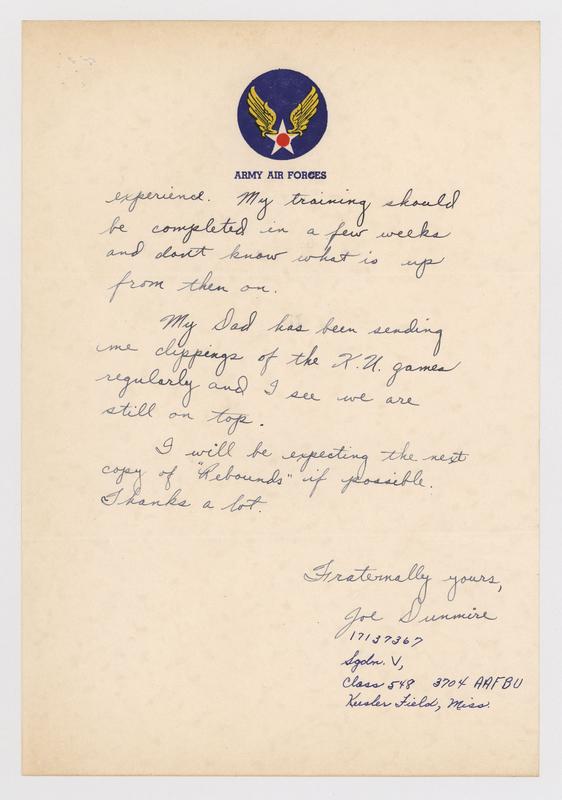 ARMY AIR FORCES
experience. My training should
be completed in a few weeks
and don't know what is up
from then on.
My Dad has been sending
me clippings of the K.U. games
regularly and I see we are
still on top.
I will be expecting the next
copy of "Rebounds" if possible.
Thanks a lot.
Fraternally yours,
Joe Dunmire
17137367
Sqdn. V,
Class 548 3704 AAFBU
Keesler Field, Miss.